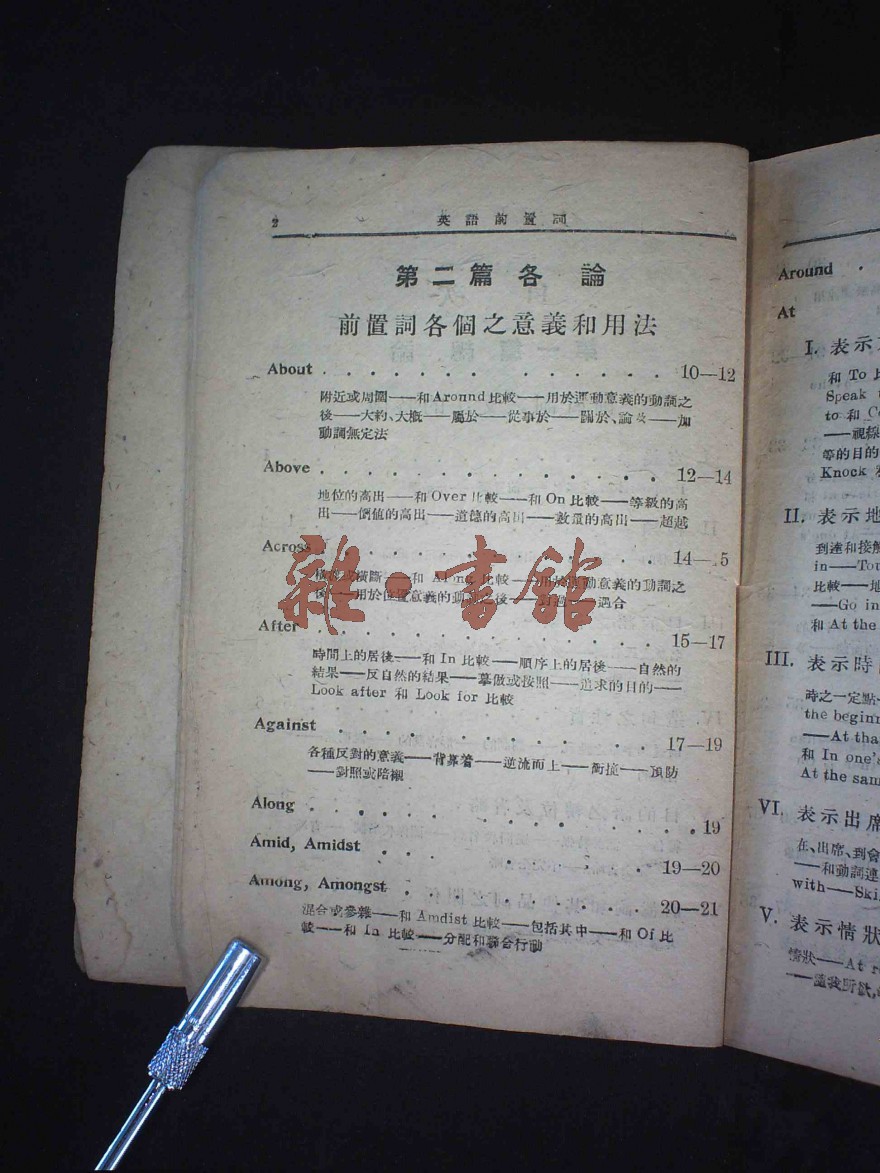 2 英語前置詞
第二篇各 論
前置詞各個之意義和用法
About . . . . . . . . . . . . 10—12
附近或周圍——和 Aronnd 比較——用於運動意義的動詞之
後——大約、大概——屬於——從事於——關於、論及——加
動詞無定法
Above . . . . . . . . . . . . 12—14
地位的高出——和 Over 比較——和 On 比較——等級的高
出——價值的高出——道德的高出——數量的高出——超越
Across . . . . . . . . . . . . 14—.5
雜·書館
橫斷——和 Along 比較——用於運動意義的動詞之
後——用於位置意義的動詞之後——遇合
After . . . . . . . . . . . . 15—17
時間上的居後——和 In 比較——順序上的居後——自然的
結果——反自然的結果——摹倣或按照——追求的目的——
Look after 和 Look for 比較
Against . . . . . . . . . . . . 17—19
各種反對的意義——背靠着——逆流而上——衝撞——預防
——對照或陪襯
Along . . . . . . . . . . . . 19
Amid, Amidst . . . . . . . . . 19—20
Among, Amongst . . . . . . . . 20—21
混合或參雜——和 Amdist 比較——包括其中——和 Of 比
較——和 In 比較——分配和聯合行動
Around .
At
I. 表示
和 To
Speak
to 和
——視線
等的目的
Knock
II. 表示地
到達和接觸
in——
比較——
——Go in
和 At the
III. 表示時
時之一定點
the
——At
和 In one's
At the
VI. 表示出席
在、出席、到會
——和動詞
with——
V. 表示情狀
情狀——At